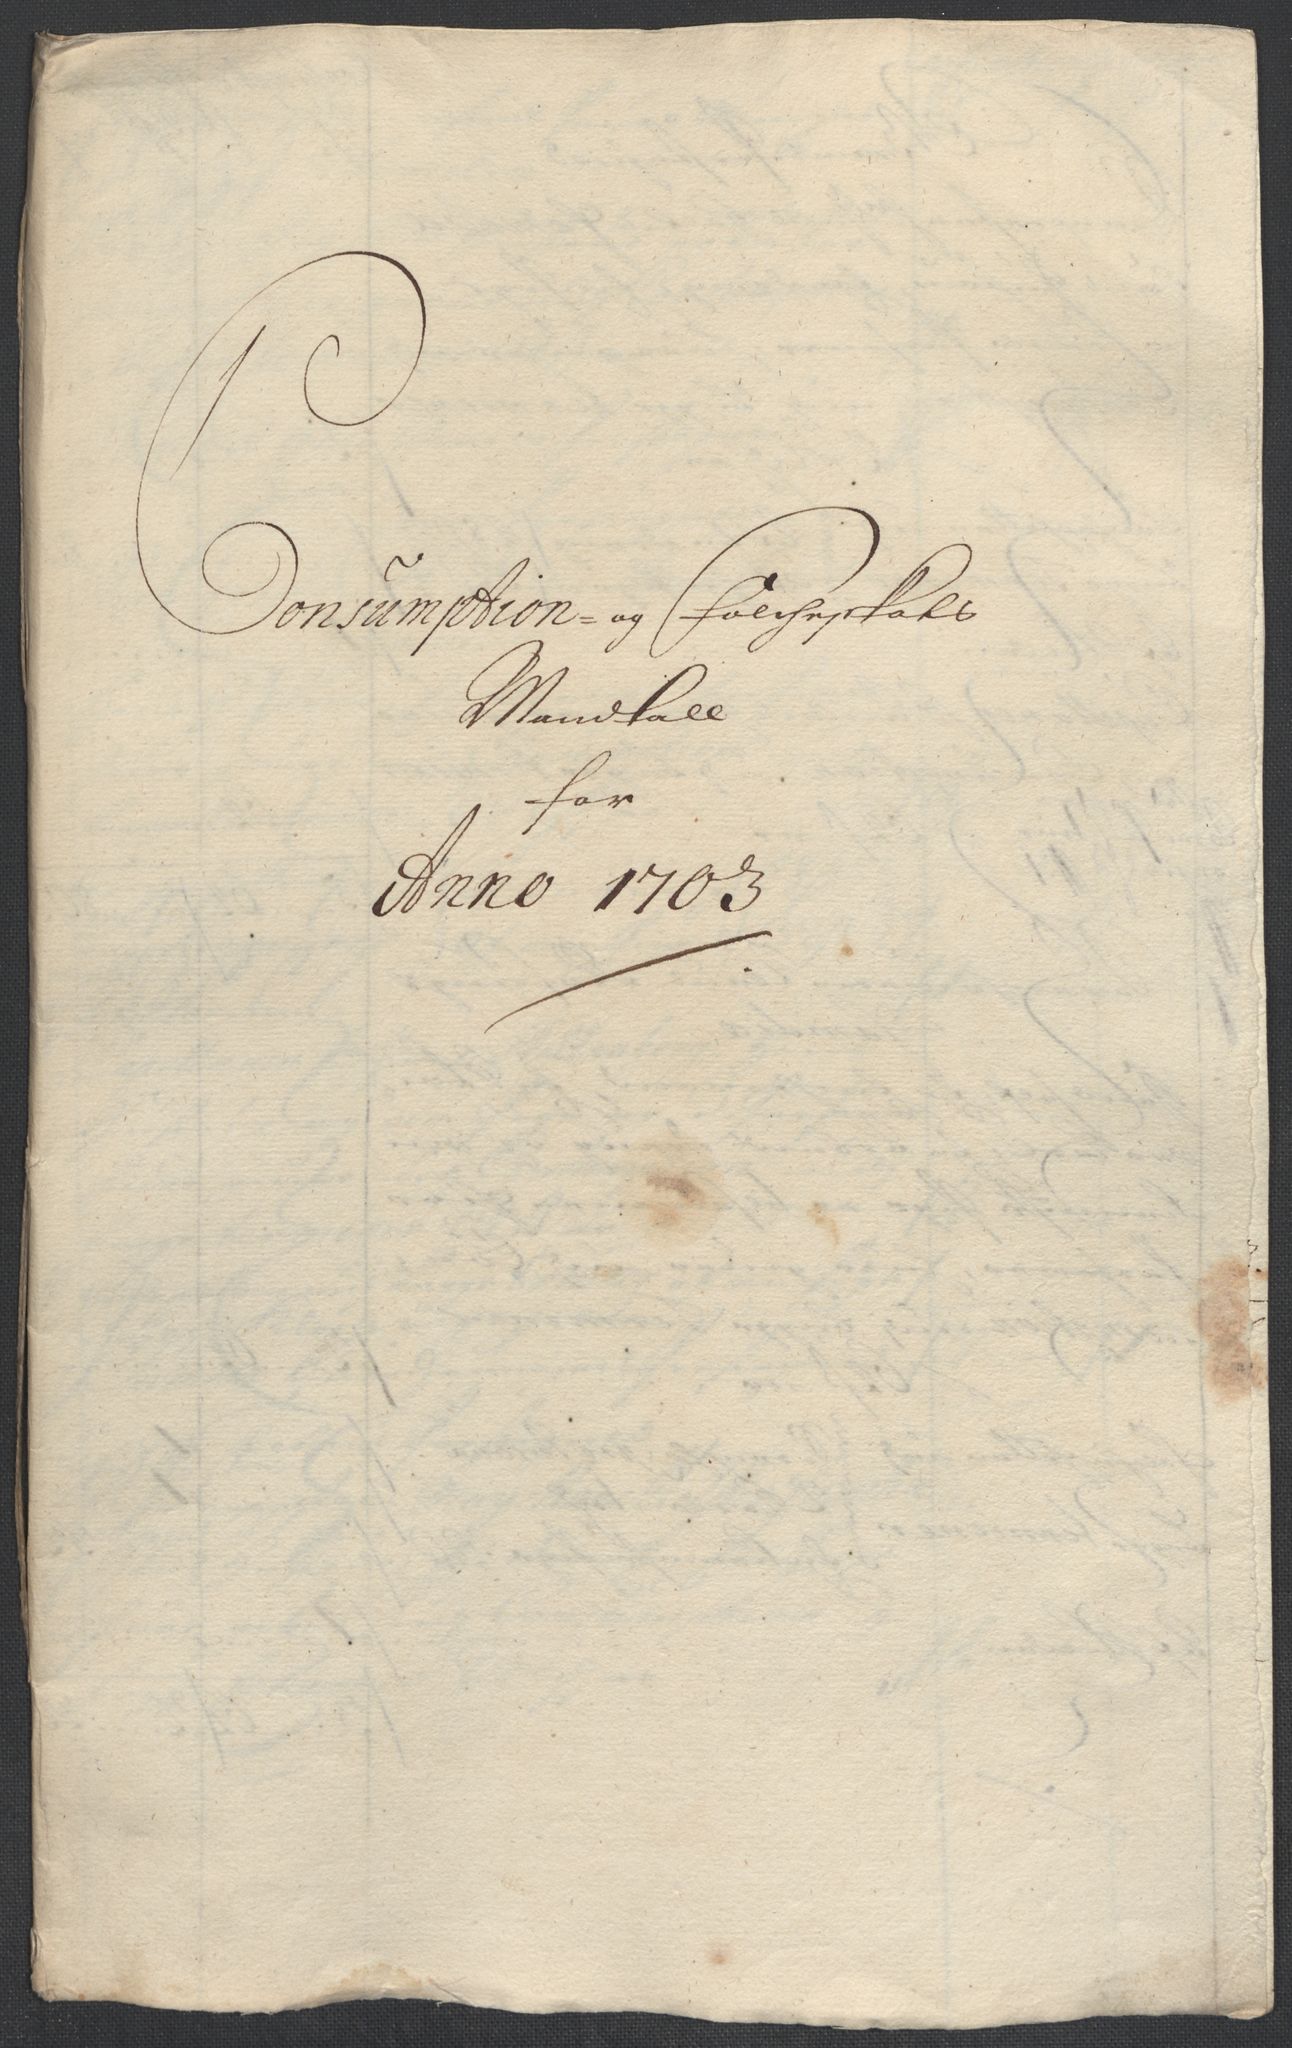 Consumption= og Folcheskats
Mandtall
for
Anno 1703